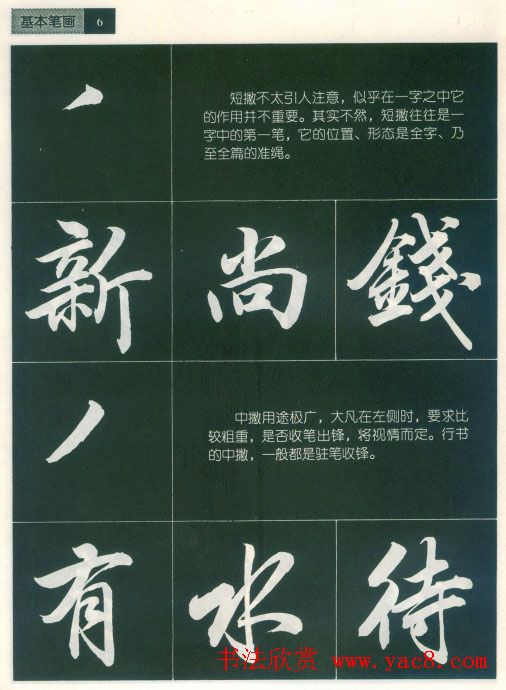 基本笔画 6
短撇不太引人注意，似乎在一字之中它
的作用并不重要。其实不然，短撇往往是一
字中的第一笔，它的位置、形态是全字、乃
至全篇的准绳。
新 尚 錢
中撇用途极广，大凡在左侧时，要求比
较粗重，是否收笔出锋，将视情而定。行书
的中撇，一般都是驻笔收锋。
有 水 待
书法欣赏 www.yac8.com